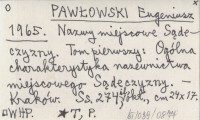 PAWŁOWSKI Eugeniusz
1965. Nazwy miejscowe Sąde-
czyzny. Tom pierwszy: Ogólna
charakterystyka nazewnictwa
miejscowego Sądeczyzny. —
Kraków. Ss. 274, cm 24x17.
WHP. *T, P.